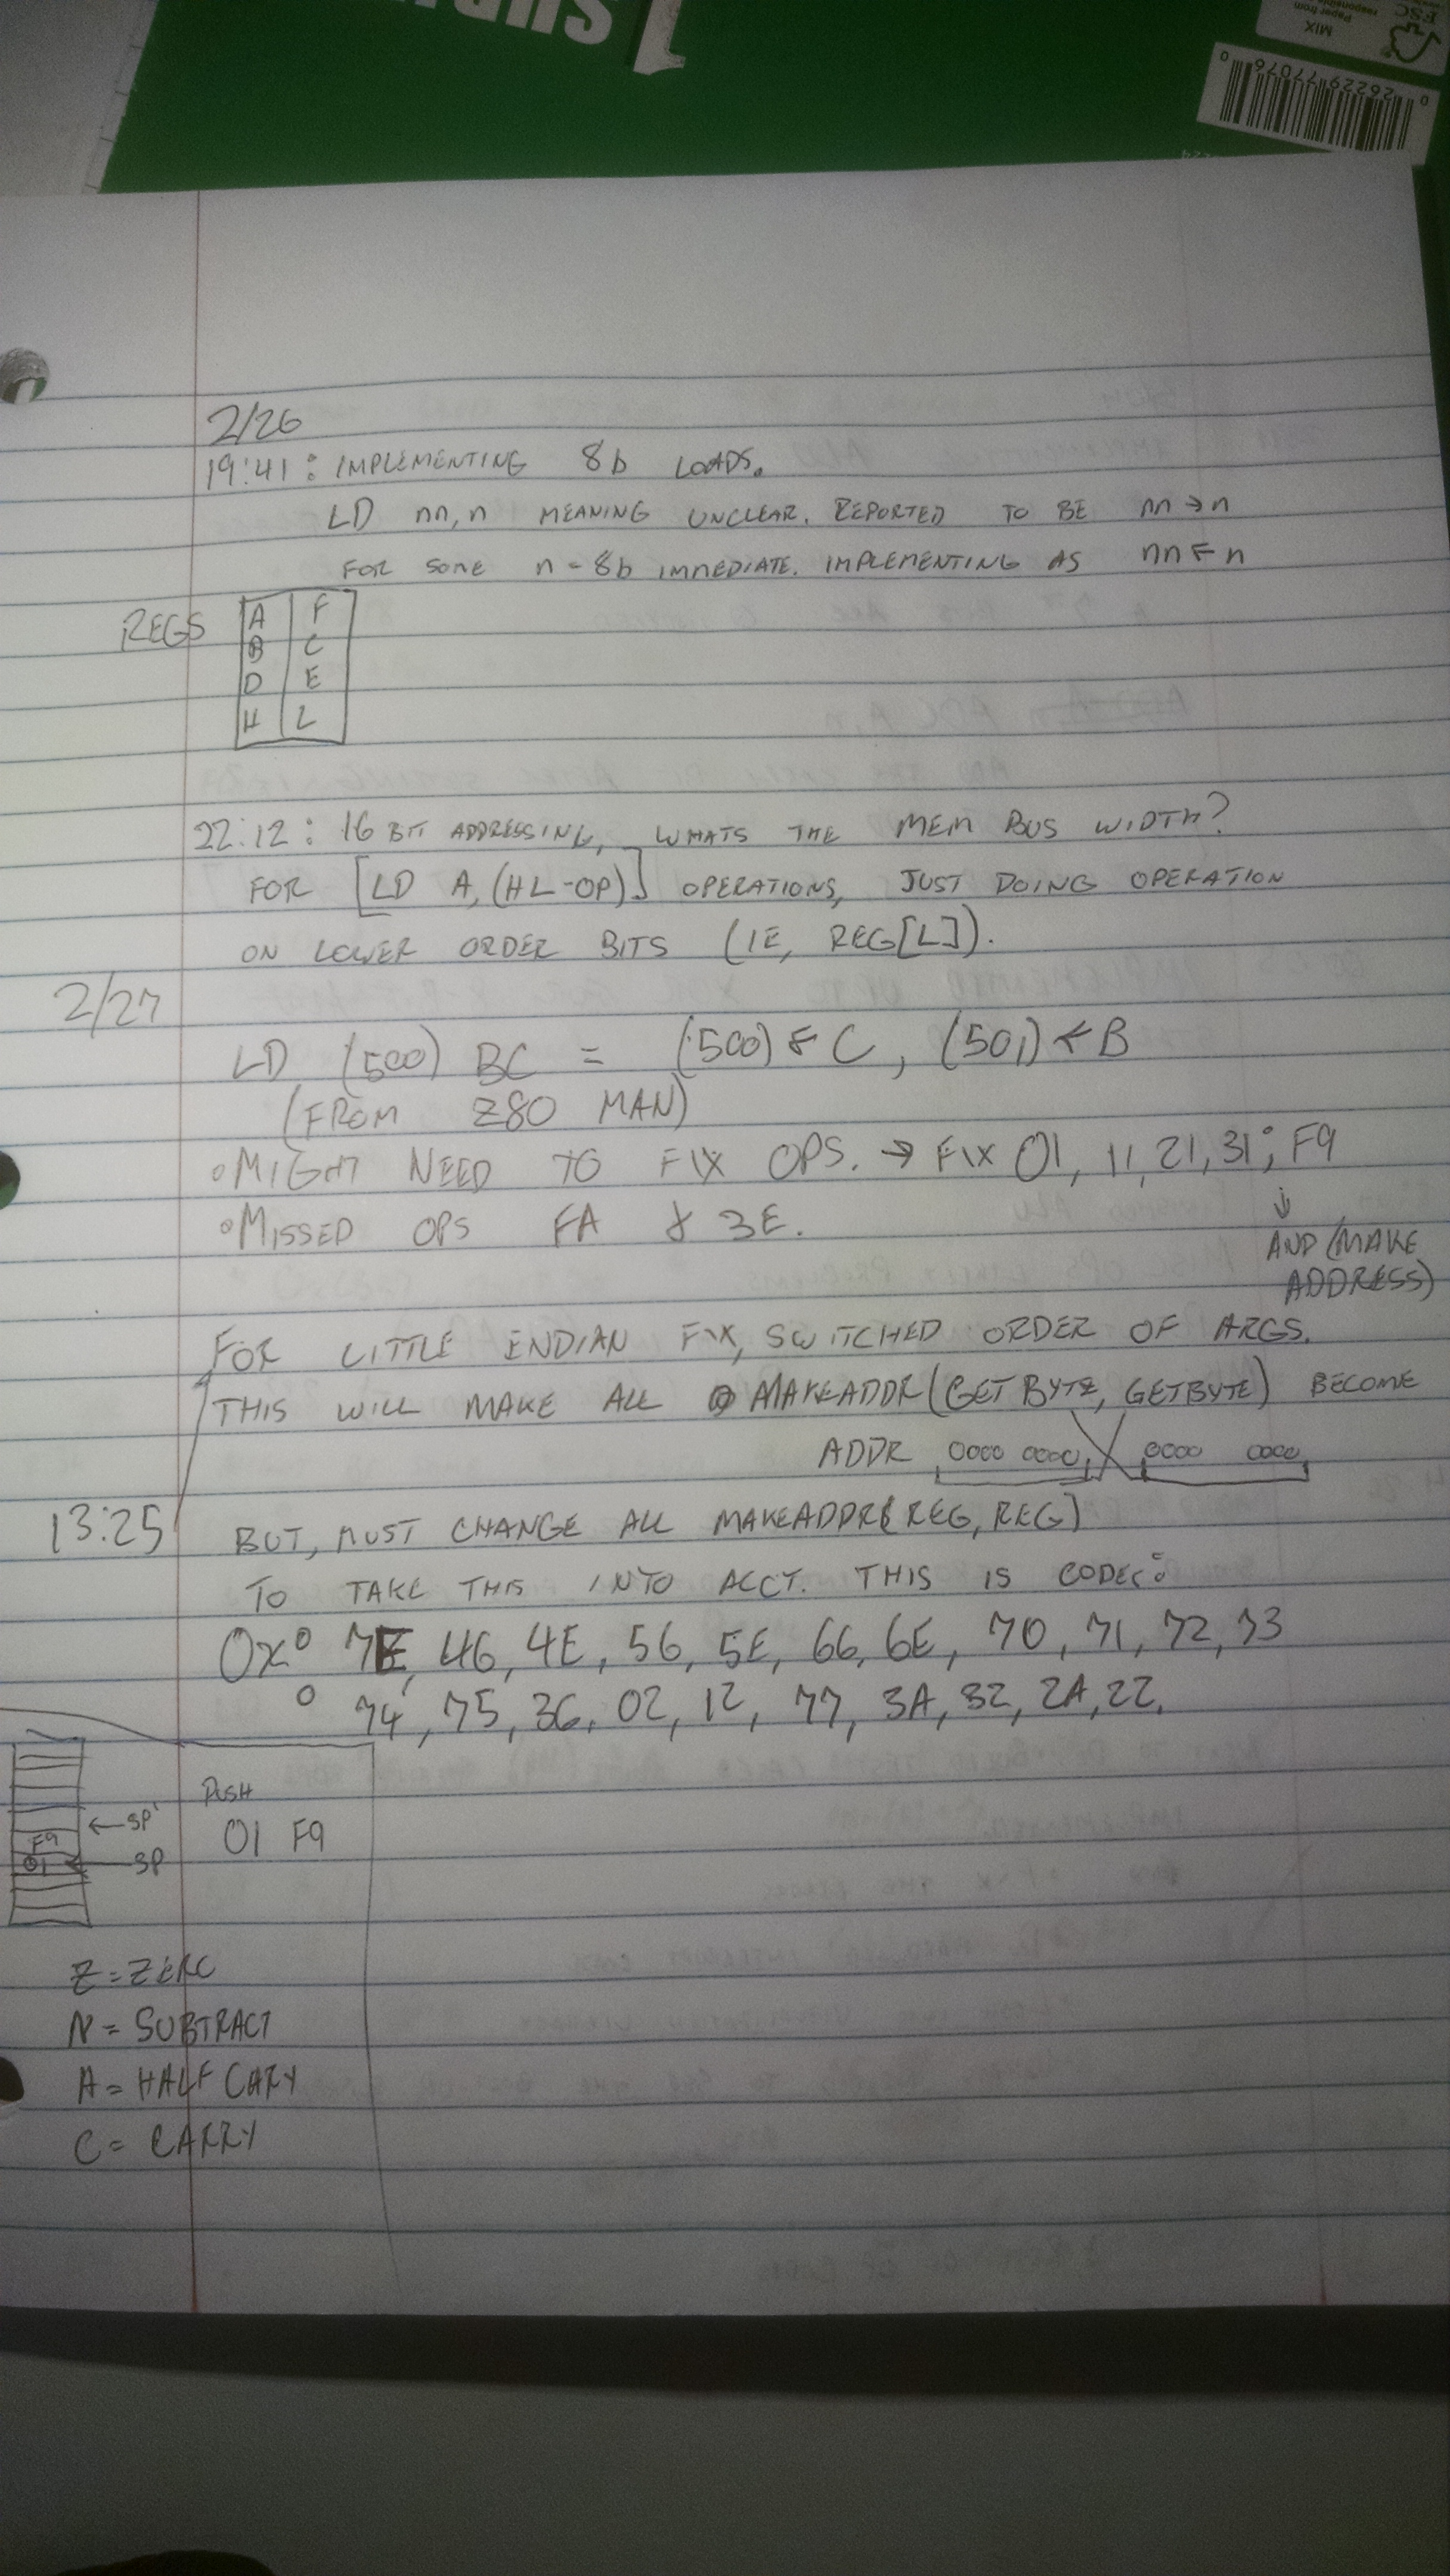 MIX
Paper from
responsible
FSC
0 26229 77076 0
2/26
19:41: IMPLEMENTING 8b LOADS.
LD nn,n MEANING UNCLEAR. REPORTED TO BE nn→n
FOR SOME n = 8b IMMEDIATE. IMPLEMENTING AS nn←n
REGS
A F
B C
D E
H L
22:12: 16 BIT ADDRESSING, WHATS THE MEM BUS WIDTH?
FOR [LD A, (HL-OP)] OPERATIONS, JUST DOING OPERATION
ON LOWER ORDER BITS (IE, REG[L]).
2/27
LD (500) BC = (500) ← C, (501) ← B
(FROM Z80 MAN)
◦MIGHT NEED TO FIX OPS. → FIX 01, 11, 21, 31; F9
◦MISSED OPS FA & 3E.
↓
AND (MAKE
ADDRESS)
FOR LITTLE ENDIAN FIX, SWITCHED ORDER OF ARGS.
THIS WILL MAKE ALL MAKEADDR(GETBYTE, GETBYTE) BECOME
ADDR 0000 0000 0000 0000
13:25
BUT, MUST CHANGE ALL MAKEADDR(REG, REG)
TO TAKE THIS INTO ACCT. THIS IS CODES:
0x: 7E, 46, 4E, 56, 5E, 66, 6E, 70, 71, 72, 73
74, 75, 36, 02, 12, 77, 3A, 32, 2A, 22.
PUSH
←SP'
01 F9
F9
01 ←SP
Z = ZERO
N = SUBTRACT
H = HALF CARY
C = CARRY